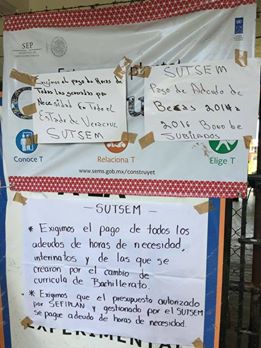 SEP
Exijimos el pago de Horas de
Todas las generadas por
Necesidad En Todo el
Estado de Veracruz
SUTSEM
SUTSEM
Pago de Adeudo de
Becas 2014 y
2016 Bono de
Jubilados
Conoce T
Relaciona T
Elige T
www.sems.gob.mx/construyet
- SUTSEM -
* Exigimos el pago de todos los
adeudos de horas de necesidad,
internatos y de las que se
crearon por el cambio de
curricula de Bachillerato.
* Exigimos que el presupuesto autorizado
por SEFIPLAN y gestionado por el SUTSEM
se pague adeudo de horas de necesidad.
EXPERIMENTAL